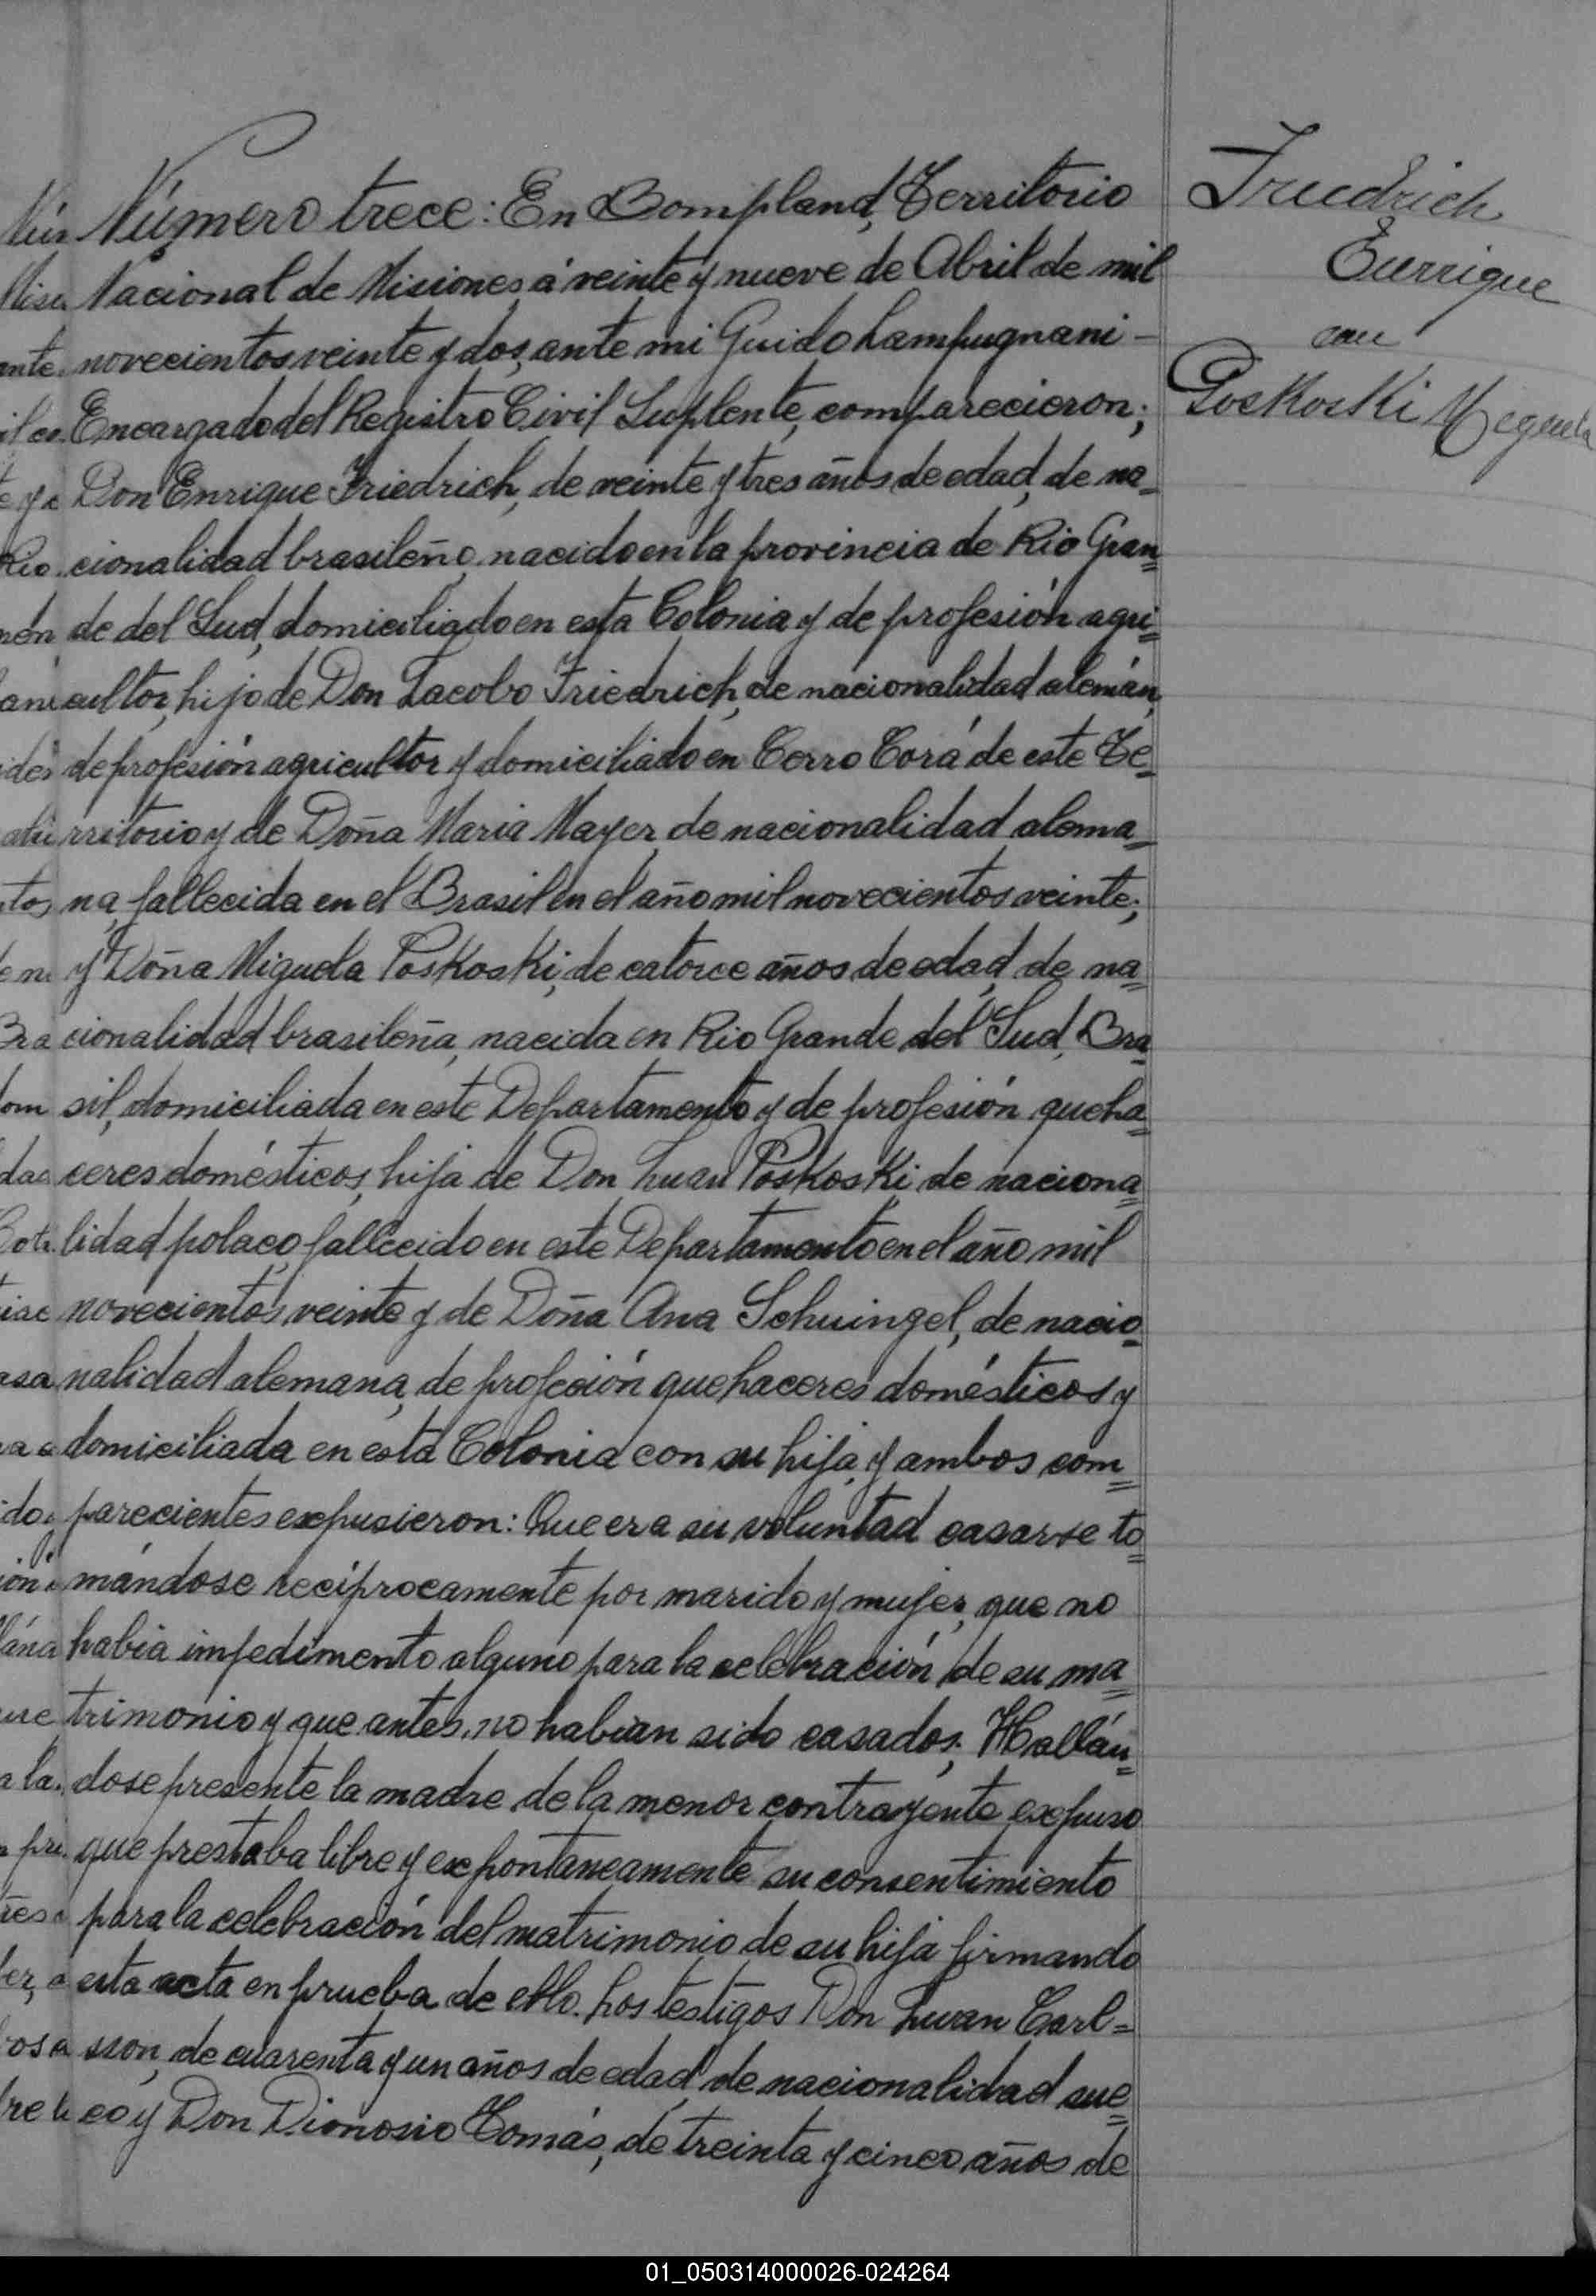 Número trece: En Bompland, Territorio
Nacional de Misiones á veinte y nueve de Abril de mil
novecientos veinte y dos, ante mi Guido Lampugnani -
Encargado del Registro Civil Suplente, comparecieron;
Don Enrique Friedrich, de veinte y tres años de edad, de na-
cionalidad brasileño, nacido en la provincia de Rio Gran=
de del Sud, domiciliado en esta Colonia y de profesión agri=
cultor, hijo de Don Jacobo Friedrich, de nacionalidad alemán,
de profesión agricultor y domiciliado en Cerro Corá de este Te=
rritorio y de Doña Maria Mayer, de nacionalidad alema=
na, fallecida en el Brasil en el año mil novecientos veinte;
y Doña Miguela Poskoski, de catorce años de edad, de na=
cionalidad brasileña, nacida en Rio Grande del Sud, Bra=
sil, domiciliada en este Departamento y de profesión queha=
ceres domésticos, hija de Don Juan Poskoski, de naciona=
lidad polaco, fallecido en este Departamento en el año mil
novecientos veinte y de Doña Ana Schuingel, de nacio=
nalidad alemana, de profesión quehaceres domésticos y
domiciliada en esta Colonia con su hija, y ambos com=
parecientes expusieron: Que era su voluntad casarse to=
mándose recíprocamente por marido y mujer, que no
habia impedimento alguno para la celebración de su ma=
trimonio y que antes no habian sido casados. Hallán=
dose presente la madre de la menor contrayente expuso
que prestaba libre y expontaneamente su consentimiento
para la celebración del matrimonio de su hija firmando
esta acta en prueba de ello. Los testigos Don Juan Carl=
sson, de cuarenta y un años de edad, de nacionalidad sue=
co y Don Dionosio Tomás, de treinta y cinco años de
Friedrich
Enrique
con
Poskoski
01_050314000026-024264